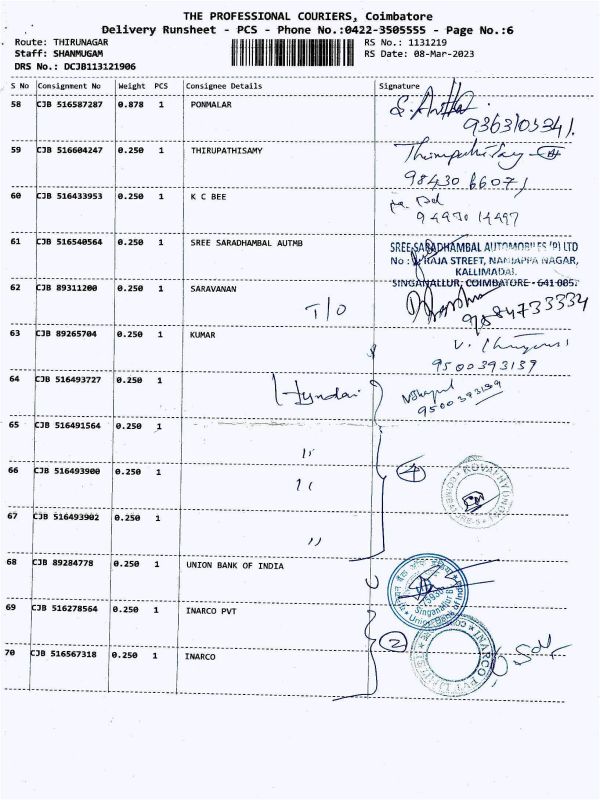 THE PROFESSIONAL COURIERS, Coimbatore
Delivery Runsheet - PCS - Phone No.:0422-3505555 - Page No.:6
Route: THIRUNAGAR
RS No.: 1131219
Staff: SHANMUGAM
RS Date: 08-Mar-2023
DRS No.: DCJB113121906
S No Consignment No Weight PCS Consignee Details Signature
58 CJB 516587287 0.878 1 PONMALAR
59 CJB 516604247 0.250 1 THIRUPATHISAMY
60 CJB 516433953 0.250 1 K C BEE
61 CJB 516540564 0.250 1 SREE SARADHAMBAL AUTMB
SREE SARADHAMBAL AUTOMOBILES (P) LTD
RAJA STREET, NANJAPPA NAGAR,
KALLIMADAI,
SINGANALLUR, COIMBATORE - 641 005.
62 CJB 89311200 0.250 1 SARAVANAN
T/O
9884733334
63 CJB 89265704 0.250 1 KUMAR
9500393139
64 CJB 516493727 0.250 1 Hyndai
9500393139
65 CJB 516491564 0.250 1
"
66 CJB 516493900 0.250 1
"
4
67 CJB 516493902 0.250 1
"
68 CJB 89284778 0.250 1 UNION BANK OF INDIA
Union Bank of India
69 CJB 516278564 0.250 1 INARCO PVT
2
INARCO PVT LIMITED
70 CJB 516567318 0.250 1 INARCO